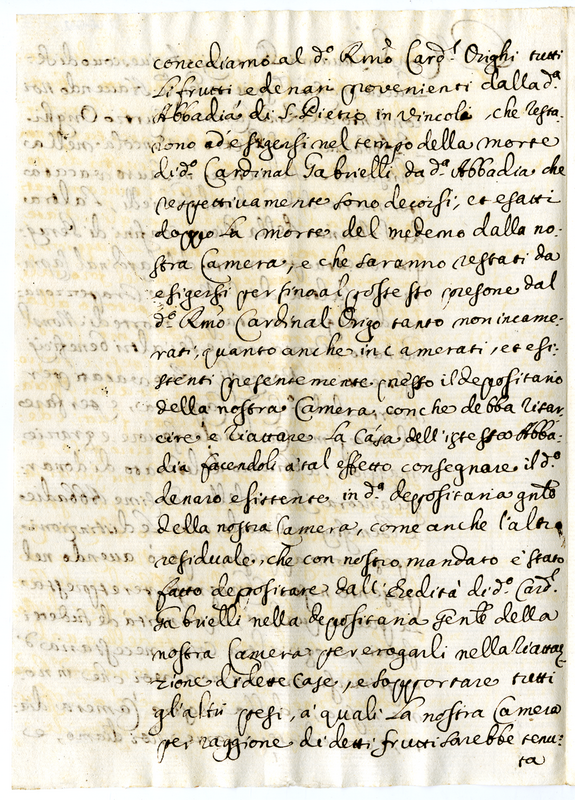 concediamo al d.º Rmõ Card.l Orighi tutti
li frutti e denari provenienti dalla d.ª
Abbadia di S. Pietro in vincoli, che resta=
rono ad'esigersi nel tempo della morte
di d.º Cardinal Gabrielli, da d.ª Abbadia che
respettivamente sono decorsi, et esatti
doppo la morte del medemo dalla no=
stra Camera, e che saranno restati da
esigersi per fino al possesso preso ne dal
d.º Rmõ Cardinal Origo tanto non incame=
rati, quanto anche incamerati, et esi=
stenti presentemente presso il depositario
della nostra Camera, con che debba risar=
cire e riattare la Casa dell'istessa Abba=
dia facendoli a tal effetto consegnare il d.º
denaro esistente in d.ª depositaria gnl̃e
della nostra Camera, come anche l'altro
residuale, che con nostro mandato è stato
fatto depositare dall'Eredità di d.º Card.l
Gabrielli nella depositaria gen̄le della
nostra Camera per erogarli nella riatta=
zione di dette Case, e sopportare tutti
gl'altri pesi, a' quali la nostra Camera
per raggione di detti frutti sarebbe tenu=
ta